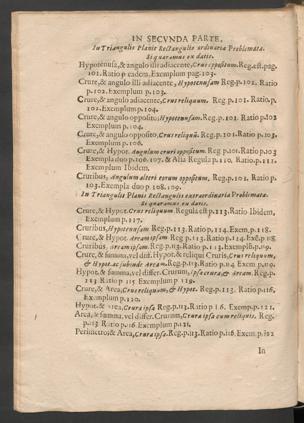 IN SECVNDA PARTE.
In Triangulis Planis Rectangulis ordinaria Problemata.
Si quaramus ex datis.
Hypotenusa, & angulo illi adiacente, Crus oppositum. Reg. est. pag.
101. Ratio p eadem. Exemplum pag. 103.
Crure, & angulo illi adiacente, Hypotenusam Reg. p. 102. Ratio
p. 102. Exemplum p. 103.
Crure, & angulo adiacente, Crus reliquum. Reg p. 101. Ratio p.
102. Exemplum p. 104.
Crure, & angulo opposito, Hypotenusam. Reg. p. 101 Ratio p. 102
Exemplum p. 104.
Crure, & angulo opposito, Crus reliquū. Reg. p. 101. Ratio p. 103.
Exemplum p. 106.
Crure, & Hypot. Angulum cruri oppositum Reg p. 101. Ratio p. 103
Exempla duo p. 106. 107. & Alia Regula p. 110. Ratio p. 111.
Exemplum Ibidem,
Cruribus, Angulum alteri eorum oppositum, Reg. p. 101. Ratio p.
103. Exempla duo p 108. 109.
In Triangulis Planis Rectangulis extraordinaria Problemata.
Si quaramus ex datis.
Crure, & Hypot. Crus reliquum Regula est p. 113. Ratio Ibidem,
Exemplum p. 117.
Cruribus, Hypotenusam Reg. p. 113. Ratio p. 114. Exem. p. 118.
Crure, & Hypot. Aream ipsam Reg. p. 113. Ratio p. 114. Exē. p. 118
Cruribus, Aream ipsam. Reg. p. 113. Ratio p. 113. Exemplū. p. 119.
Crure, & summa, vel diff. Hypot. & reliqui Cruris, Crus reliquum,
& Hypot. ac subinde Aream. Reg. p. 113. Ratio p. 114. Exem. p. 119.
Hypot. & summa, vel differ. Crurum, ipsa crura, & Aream. Reg. p.
113 Ratio p 115 Exemplum p 119.
Crure, & Area, Crus reliquum, & Hypot. Reg p. 113. Ratio p. 116,
Exemplum p. 120.
Hypot. & Area, Crura ipsa Reg. p. 113. Ratio p 116. Exemp. p. 121.
Area, & summa, vel differ. Crurum, Crura ipsa cum reliquis. Reg.
p. 113 Ratio p. 116 Exemplum p. 121.
Perimetro, & Area, Crura ipsa. Reg. p. 113. Ratio p. 116. Exem. p. 122
In